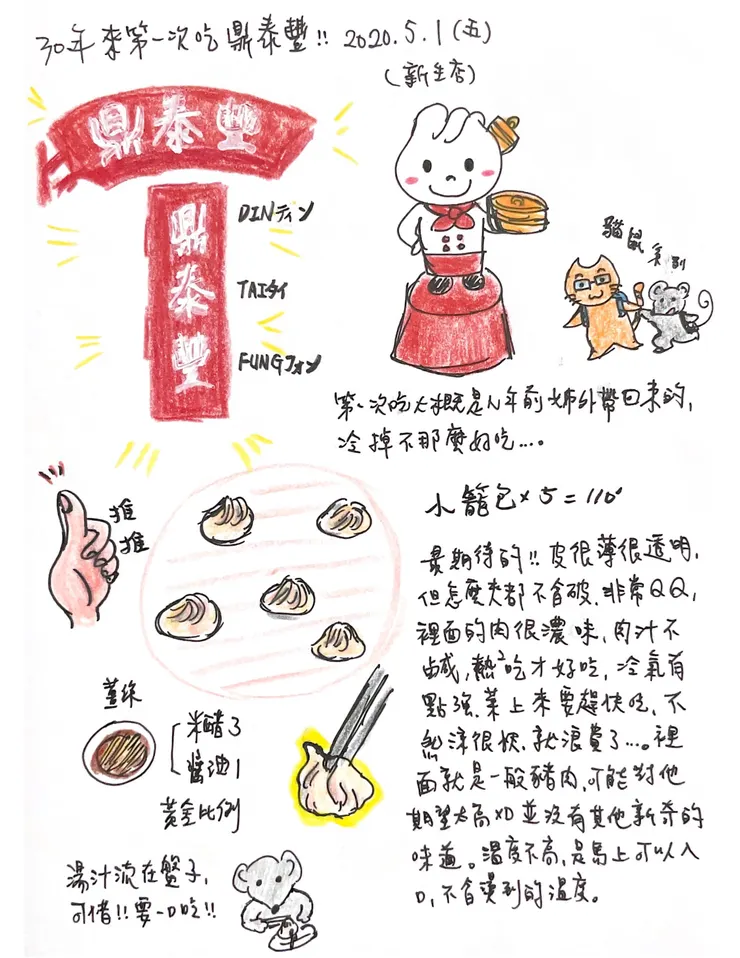 30年來第一次吃鼎泰豐!! 2020.5.1(五)
(新生店)
鼎泰豐
鼎泰豐
DINディン
TAIタイ
FUNGフォン
貓鼠
第一次吃大概是N年前姊外帶回來的,
冷掉不那麼好吃....
小籠包x5=110
推
推
最期待的!! 皮很薄很透明,
但怎麼夾都不會破、非常QQ,
裡面的肉很濃味,肉汁不
鹹,熱²吃才好吃,冷氣有
點強、菜上來要趕快吃、不
然涼很快、就浪費了...。裡
面就是一般豬肉,可能對他
期望太高XD並沒有其他新奇的
味道。溫度不高,是馬上可以入
口,不會燙到的溫度。
薑絲
米醋3
醬油1
黃金比例
湯汁流在盤子,
可惜!!要一口吃!!